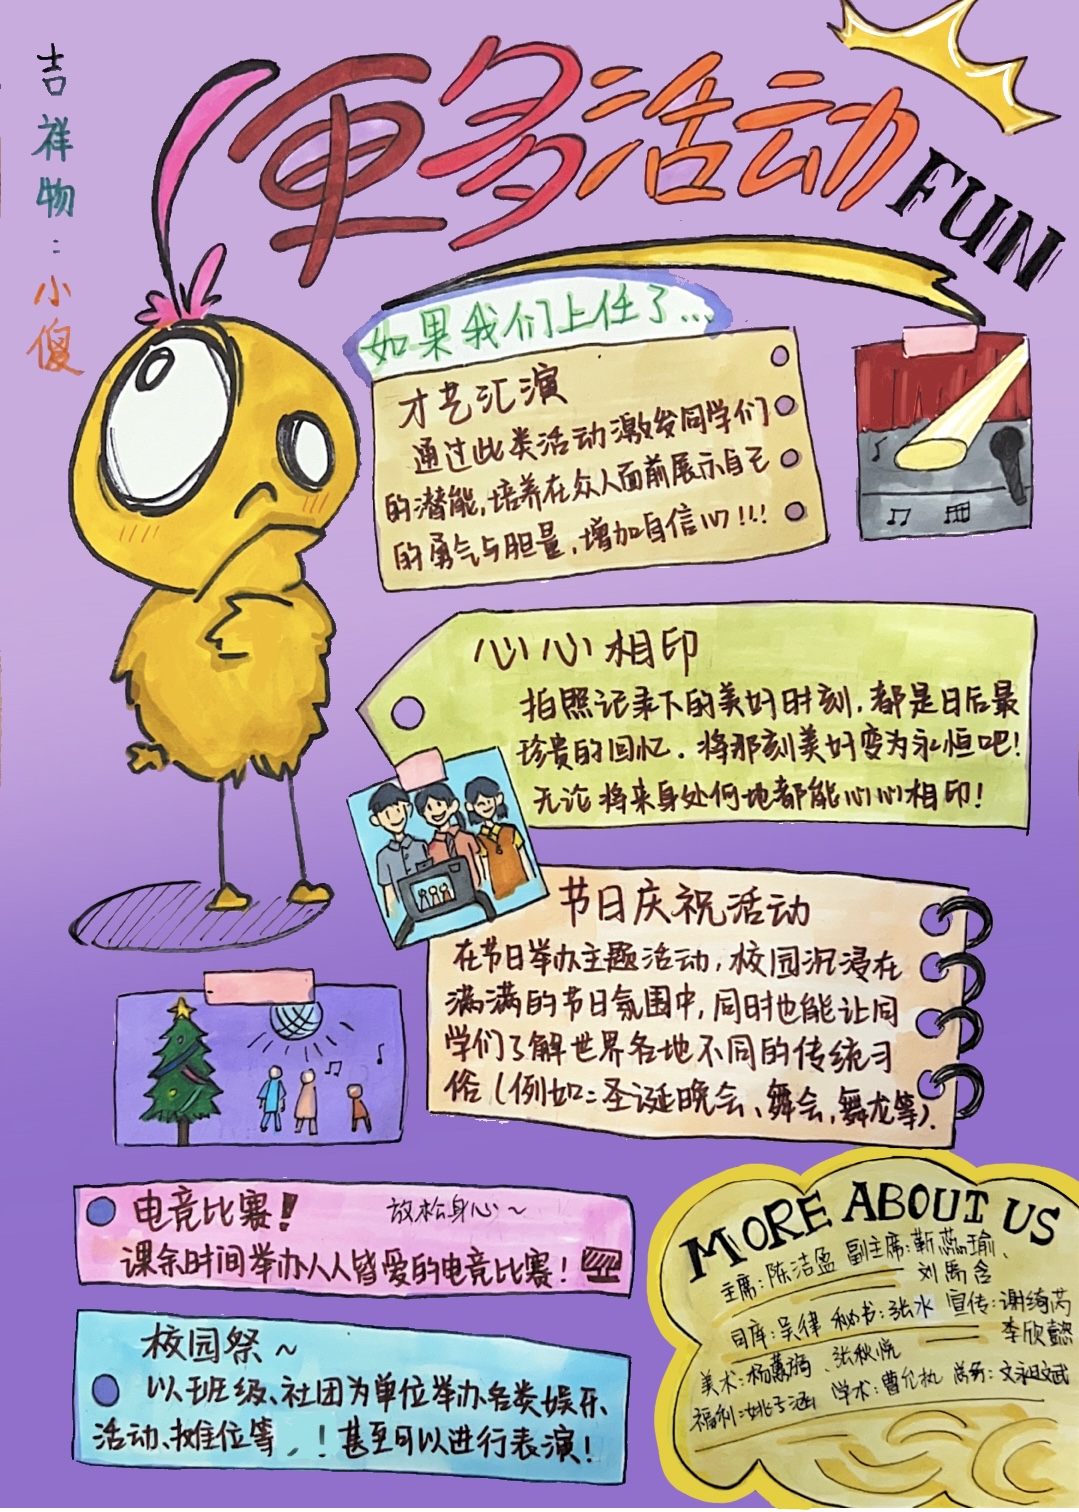 吉祥物：小傻
更多活动
FUN
如果我们上任了...
才艺汇演
通过此类活动激发同学们
的潜能,培养在众人面前展示自己
的勇气与胆量,增加自信心!!!
心心相印
拍照记录下的美好时刻,都是日后最
珍贵的回忆.将那刻美好变为永恒吧!
无论将来身处何地都能心心相印!
节日庆祝活动
在节日举办主题活动,校园沉浸在
满满的节日氛围中,同时也能让同
学们了解世界各地不同的传统习
俗(例如:圣诞晚会、舞会,舞龙等).
电竞比赛!
放松身心~
课余时间举办人人皆爱的电竞比赛!
校园祭~
以班级、社团为单位举办各类娱乐
活动、摊位等,!甚至可以进行表演!
MORE ABOUT US
主席:陈洁盈 副主席:靳蕊瑜、
刘禹含
司库:吴律 秘书:张水 宣传:谢绮芮
李欣懿
美术:杨蕙 、张秋悦
福利:姚子涵 学术:曹允执